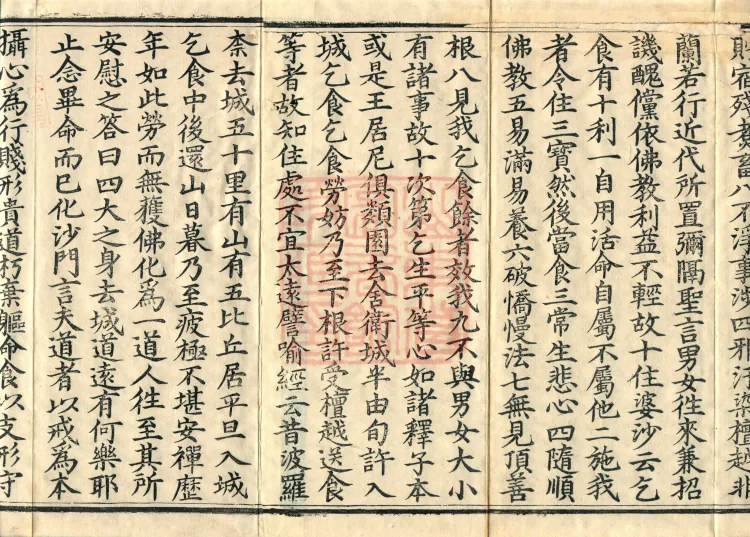 宿殘畜八不淨四邪汙染檀越非
蘭若行近代所置彌隔聖言男女往來兼招
譏醜儻依佛教利益不輕故十住婆沙云乞
食有十利一自用活命自屬不屬他二施我
者令住三寶然後當食三常生悲心四隨順
佛教五易滿易養六破憍慢法七無見頂善
根八見我乞食餘者效我九不與男女大小
有諸事故十次第乞生平等心如諸釋子本
或是王居尼俱類園去舍衛城半由旬許入
城乞食乞食勞妨乃至下根許受檀越送食
等者故知住處不宜太遠譬喻經云昔波羅
柰去城五十里有山有五比丘居平旦入城
乞食中後還山日暮乃至疲極不堪安禪歷
年如此勞而無獲佛化為一道人往至其所
安慰之答曰四大之身去城道遠有何樂耶
止念畢命而已化沙門言夫道者以戒為本
攝心為行賤形貴道朽棄軀命食以支形守